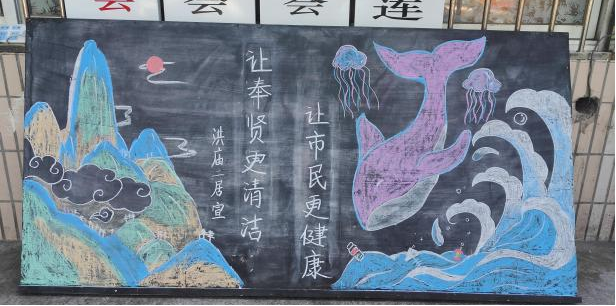 会 会 莲
让奉贤更清洁
让市民更健康
洪庙一居宣